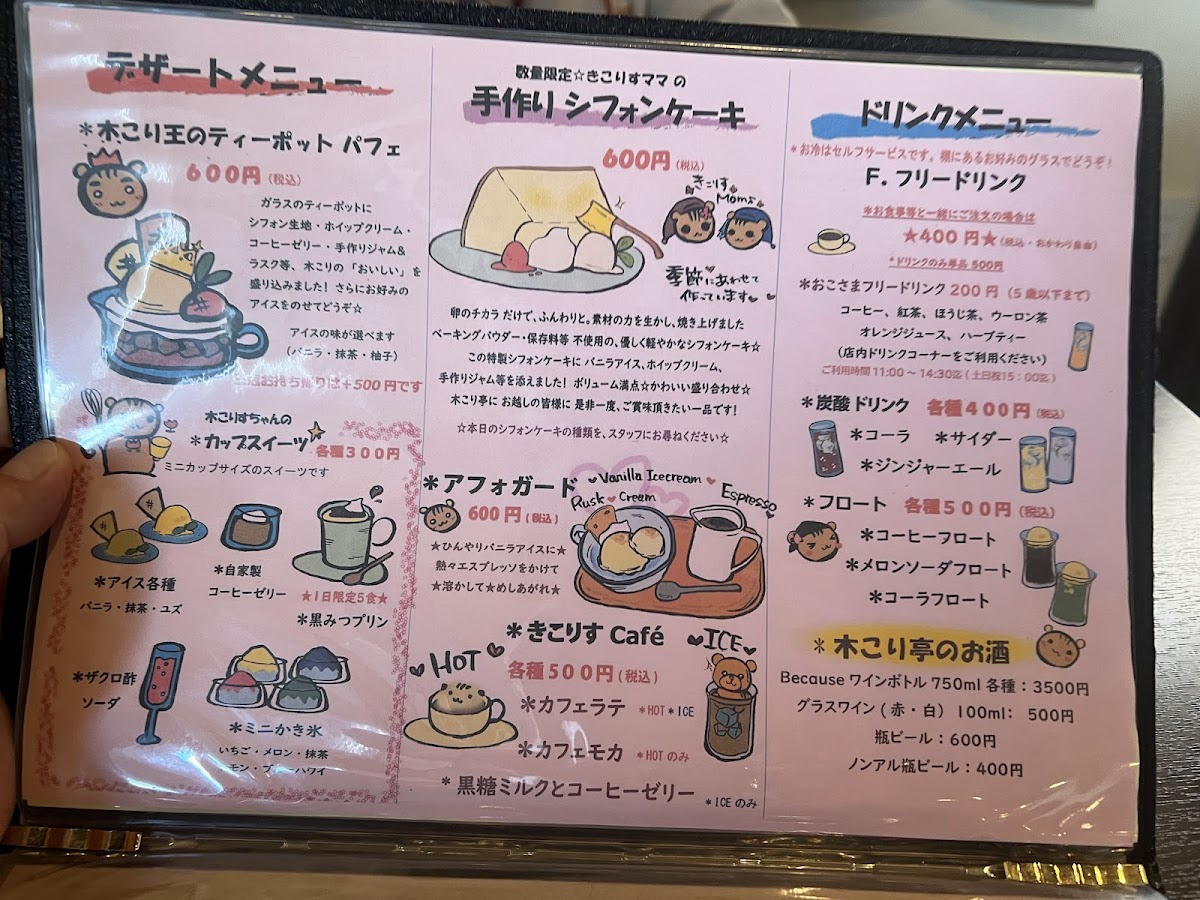 デザートメニュー
*木こり王のティーポット パフェ
600円(税込)
ガラスのティーポットに
シフォン生地・ホイップクリーム・
コーヒーゼリー・手作りジャム&
ラスク等、木こりの「おいしい」を
盛り込みました! さらにお好みの
アイスをのせてどうぞ☆
アイスの味が選べます
(バニラ・抹茶・柚子)
お持ち帰りは+500円です
木こりすちゃんの
*カップスイーツ
各種300円
ミニカップサイズのスイーツです
*アイス各種
バニラ・抹茶・ユズ
*自家製
コーヒーゼリー
★1日限定5食★
*黒みつプリン
*ザクロ酢
ソーダ
*ミニかき氷
いちご・メロン・抹茶
モン・ブ ーハワイ
数量限定☆きこりすママ の
手作り シフォンケーキ
600円(税込)
きこりす
Moms
季節にあわせて
作っています
卵のチカラ だけで、ふんわりと。素材の力を生かし、焼き上げました
ベーキングパウダー・保存料等 不使用の、優しく軽やかなシフォンケーキ☆
この特製シフォンケーキに バニラアイス、ホイップクリーム、
手作りジャム等を添えました! ボリューム満点☆かわいい盛り合わせ☆
木こり亭に お越しの皆様に 是非一度、ご賞味頂きたい一品です!
☆本日のシフォンケーキの種類を、スタッフにお尋ねください☆
*アフォガード
600円(税込)
Vanilla Icecream
Rusk
Cream
Espresso
★ひんやりバニラアイスに★
熱々エスプレッソをかけて
★溶かして★めしあがれ★
*きこりす Café
HOT
ICE
各種500円(税込)
*カフェラテ *HOT*ICE
*カフェモカ *HOTのみ
*黒糖ミルクとコーヒーゼリー
*ICEのみ
ドリンクメニュー
*お冷はセルフサービスです。棚にあるお好みのグラスでどうぞ!
F. フリードリンク
*お食事等と一緒にご注文の場合は
★400円★(税込・おかわり自由)
*ドリンクのみ単品 500円
*おこさまフリードリンク 200円 (5歳以下まで)
コーヒー、紅茶、ほうじ茶、ウーロン茶
オレンジジュース、ハーブティー
(店内ドリンクコーナーをご利用ください)
ご利用時間11:00〜14:30迄(土日祝15:00迄)
*炭酸ドリンク 各種400円(税込)
*コーラ *サイダー
*ジンジャーエール
*フロート 各種500円(税込)
*コーヒーフロート
*メロンソーダフロート
*コーラフロート
*木こり亭のお酒
Because ワインボトル 750ml 各種:3500円
グラスワイン(赤・白) 100ml: 500円
瓶ビール:600円
ノンアル瓶ビール:400円